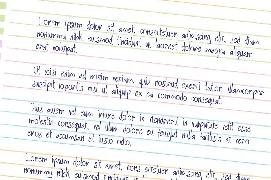 Lorem ipsum dolor sit amet, consectetuer adipiscing elit, sed diam
nonummy nibh euismod tincidunt ut laoreet dolore magna aliquam
erat volutpat.
Ut wisi enim ad minim veniam, quis nostrud exerci tation ullamcorper
suscipit lobortis nisl ut aliquip ex ea commodo consequat.
Duis autem vel eum iriure dolor in hendrerit in vulputate velit esse
molestie consequat, vel illum dolore eu feugiat nulla facilisis at vero
eros et accumsan et iusto odio.
Lorem ipsum dolor sit amet, cons ectetuer adipiscing elit, sed diam
nonummy nibh euismod tincidunt